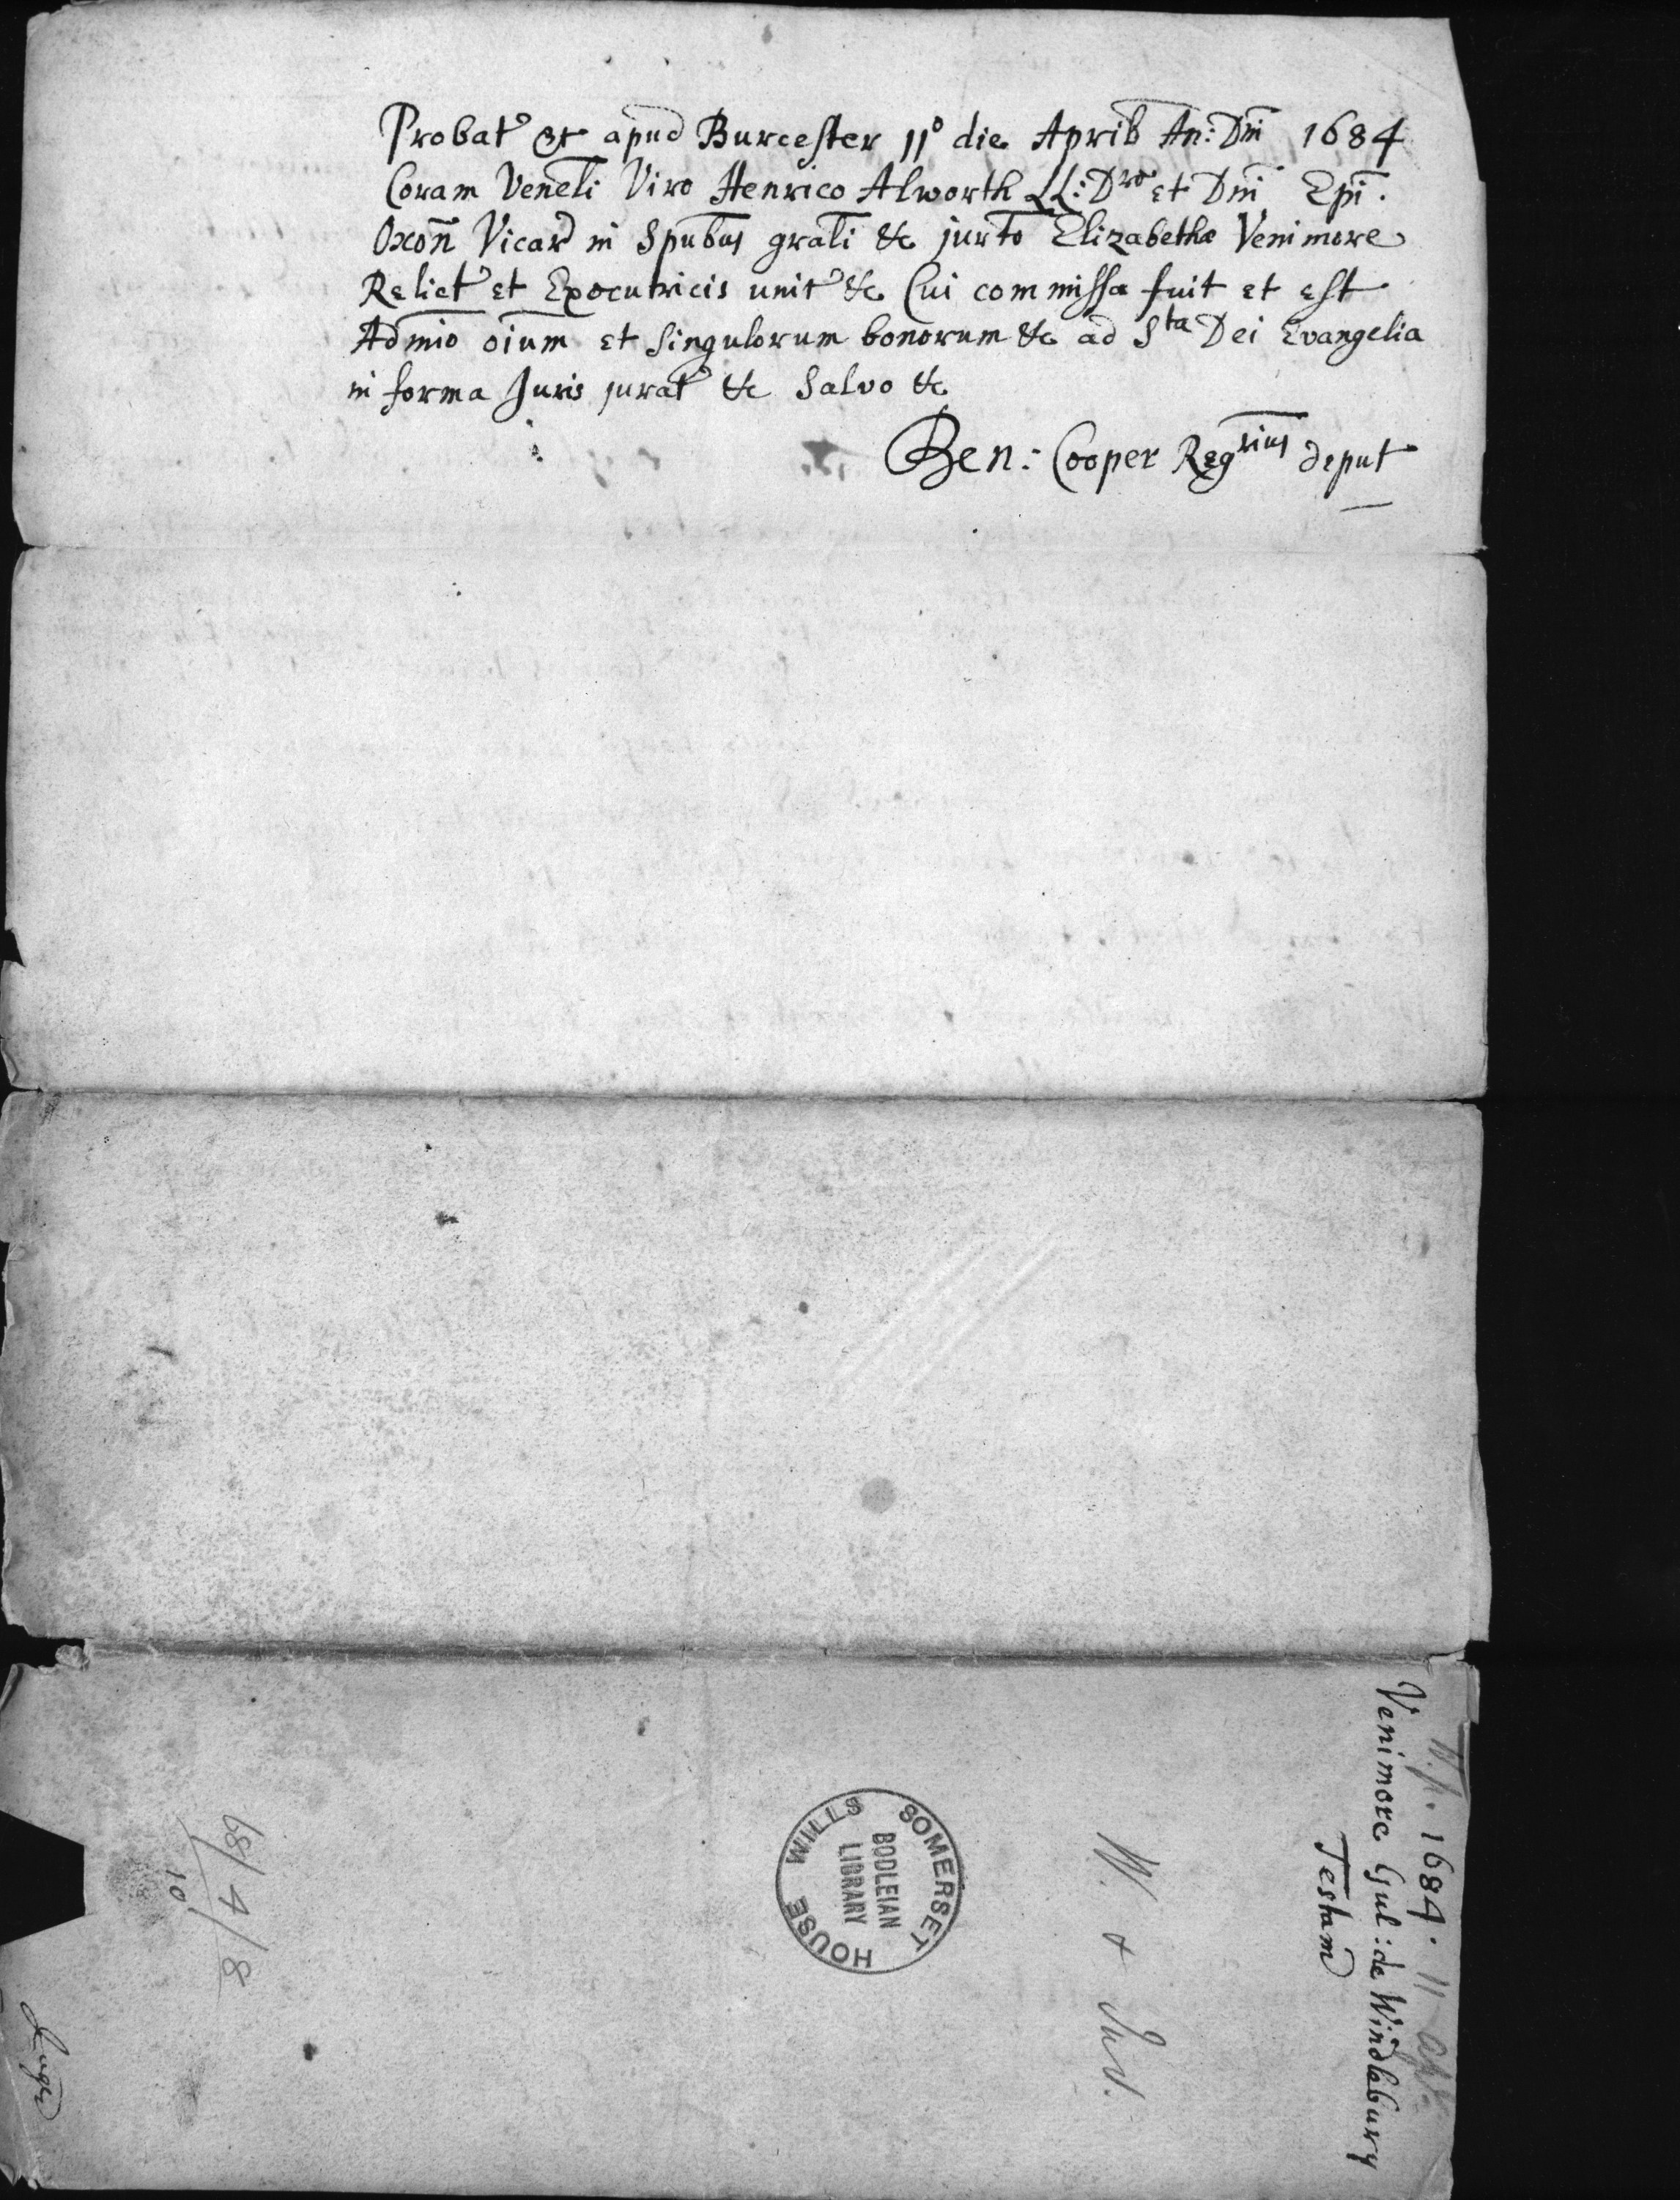 Probat' &c apud Burcester 11º die Aprilis An: Dni 1684
Coram Veneli Viro Henrico Alworth LL: Dre et Dni Epi.
Oxon Vicar in Spubus grali &c jurto Elizabethæ Venimore
Relict' et Executricis unit' &c Cui commissa fuit et est
Admio oium et singulorum bonorum &c ad Sta Dei Evangelia
in forma Juris jurat' &c Salvo &c
Ben: Cooper Regrius deput
1684. 11 Apl.
Venimore Gul: de Windlebury
Testam
W. & Invd.
SOMERSET HOUSE WILLS
BODLEIAN
LIBRARY
68/4/8
10